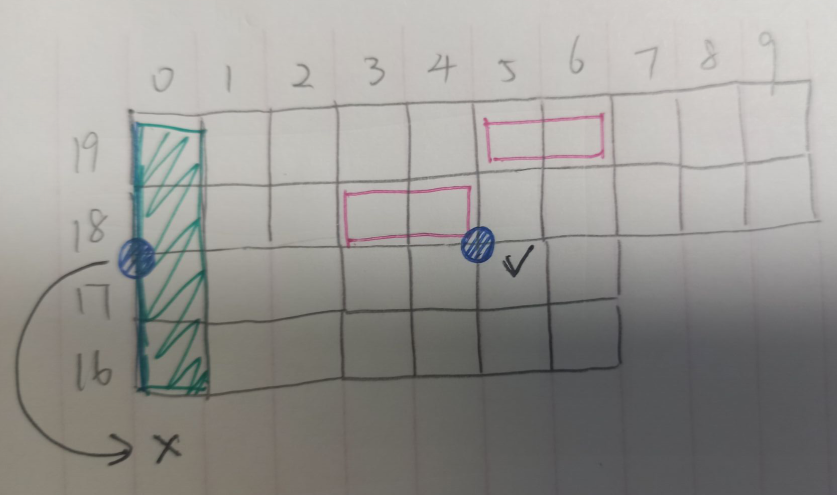 0 1 2 3 4 5 6 7 8 9
19
18
17
16